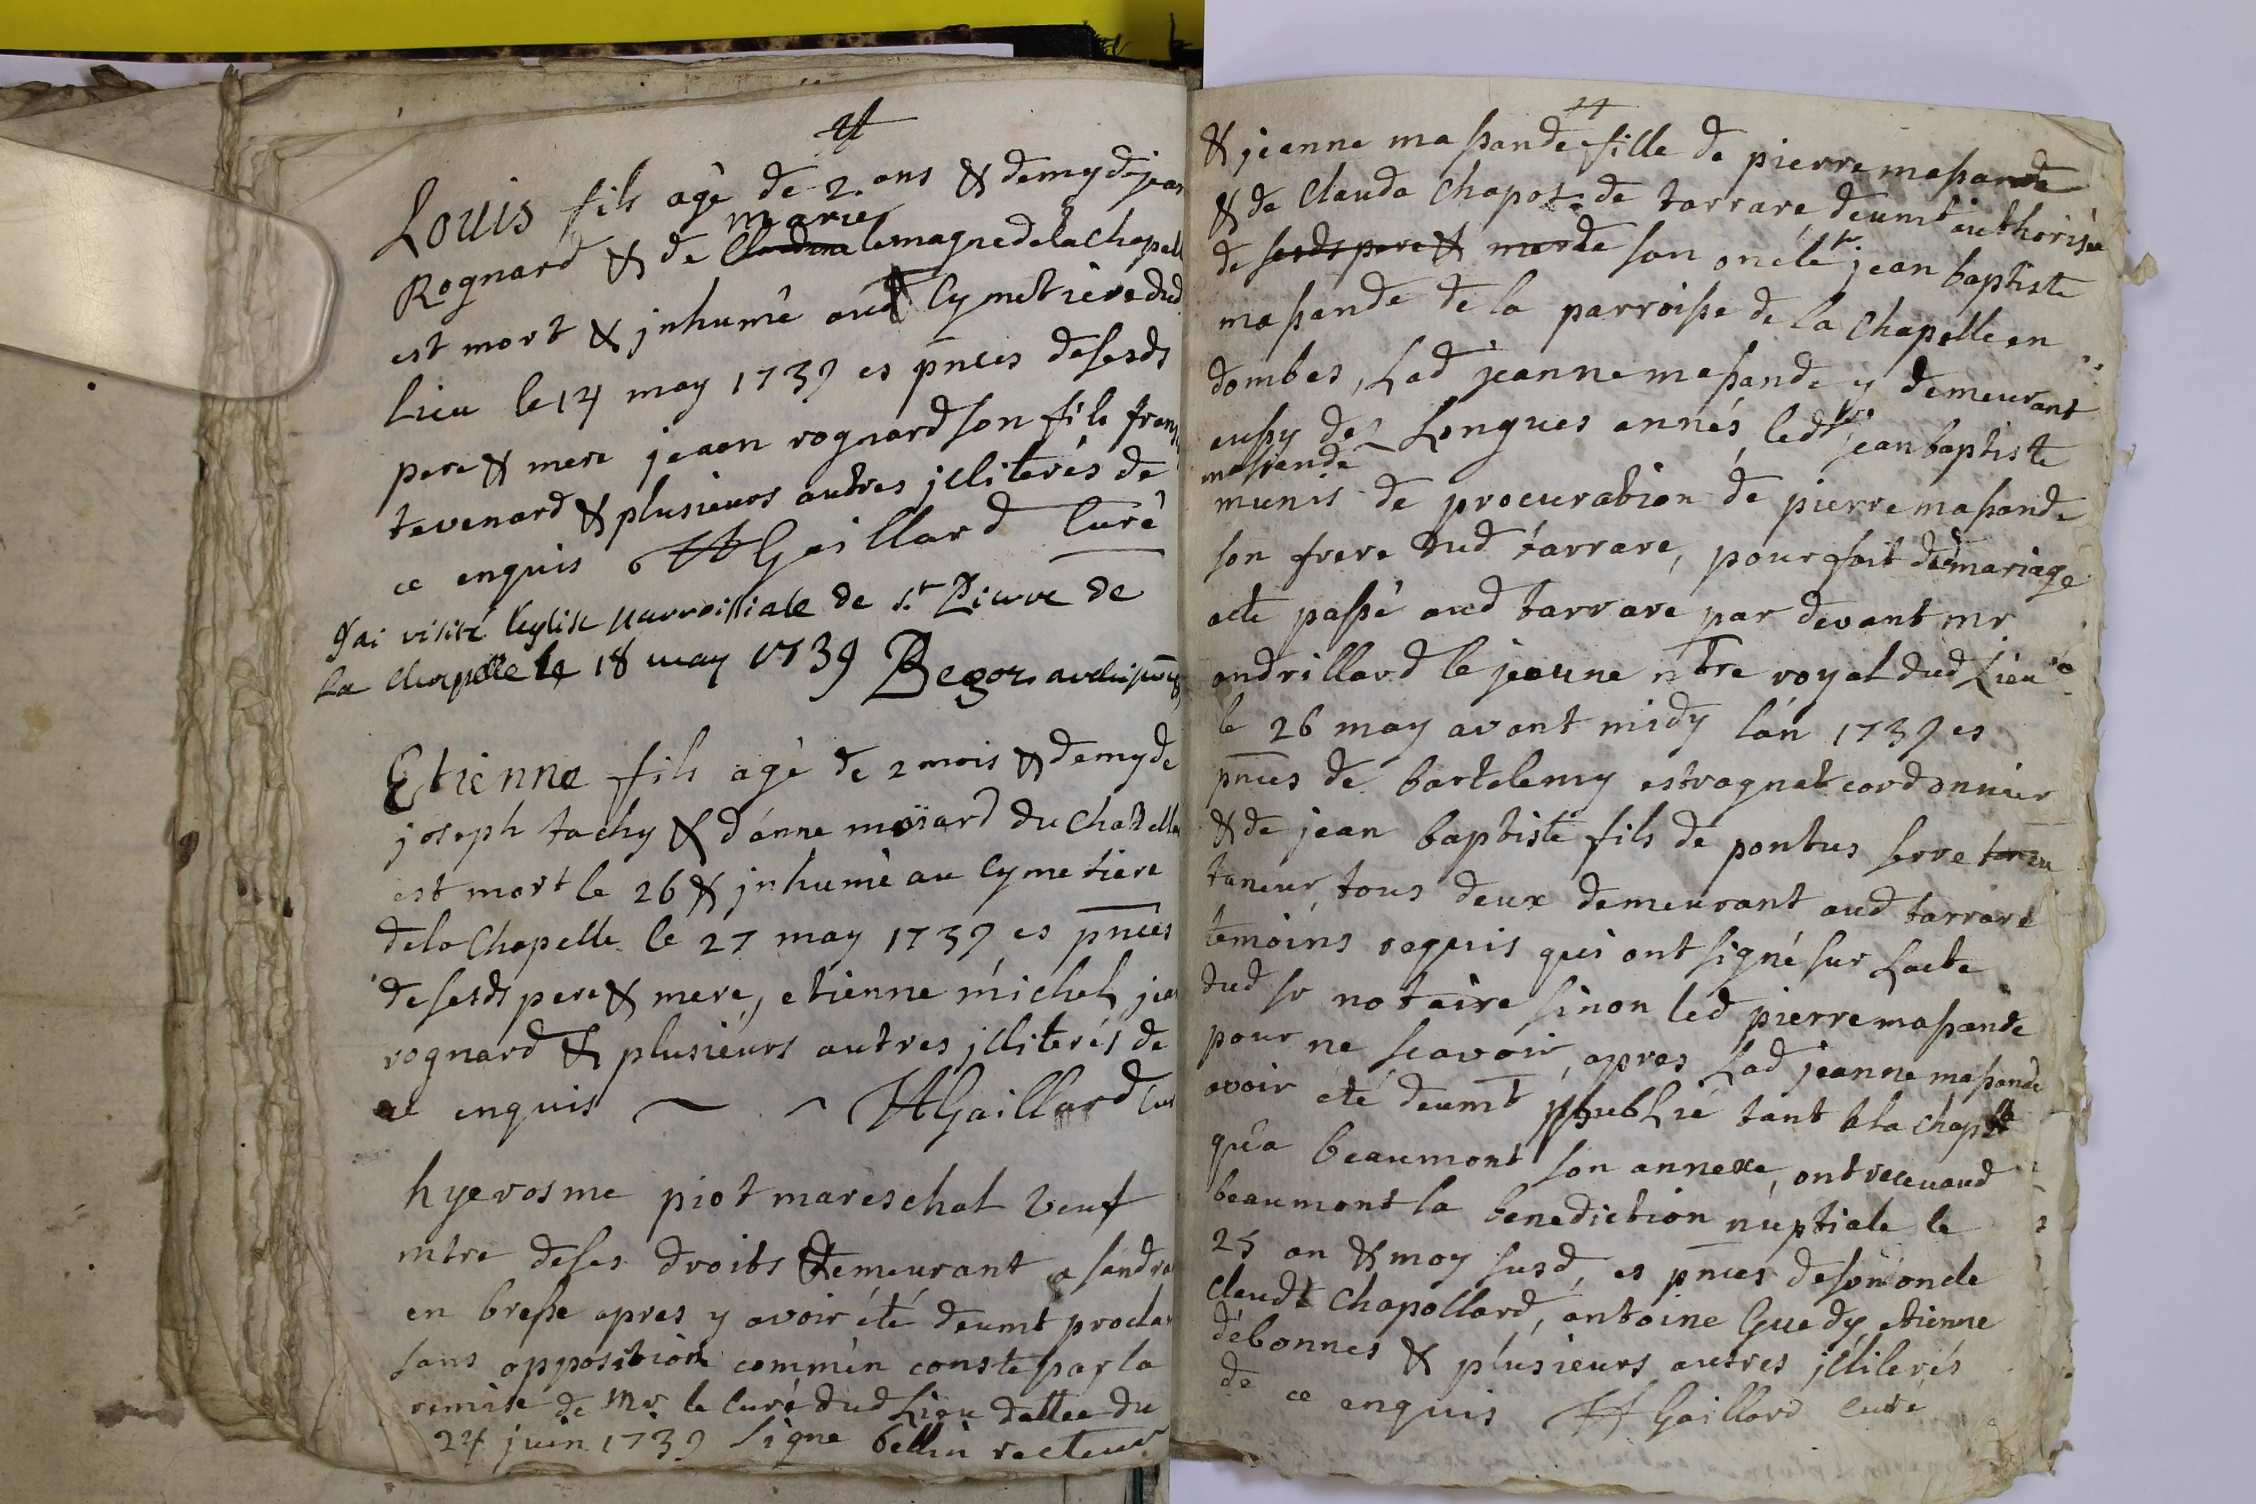 Louis fils agè de 2. ans & demy de jean
marie
Rognard & de lemagne de la chapelle
est mort & jnhumê aud Cymetiere dud
lieu le 14 may 1739 es pnces de sesds
pere & mere jeaon rognard son fils frans
tevenard & plusieurs autres jlliterés de
ce enquis Gaillard Curé
J'ai visité l'eglise parroissiale de St Pierre de
la Chapelle le 18 may 1739 Begoz
Etienne fils agè de 2 mois & demy de
joseph tachy & d'anne moïard du chatelle
est mort le 26 & jnhumè au Cymetiere
de la Chapelle le 27 may 1739 es pnces
de sesds pere & mere, etienne michel, jean
rognard & plusieurs autres jlliterés de
ce enquis Gaillard Cur
hyerosme piot mareschal veuf
mtre de ses droits demeurant a sandra
en bresse apres y avoir été deumt procla
sans opposition comm'en conste par la
remise de Mr le Curé dud Lieu dattee du
24 juin 1739 signe bellin recteur
& jeanne massande fille de pierre massande
& de Clauda Chapot de tarrare, deumt authorisée
de sesds pere & mere de son oncle sr jean baptiste
massande de la parroisse de la Chapelle en
dombes, Lad jeanne massande y demeurant
aussy de Longues annés, led sr jean baptiste
massande
munis de procuration de pierre massande
son frere dud tarrare, pour fait dud mariage
acte passé aud tarrare par devant mr
andrillard le jeune ntre royal dud Lieu
le 26 may avant midy l'an 1739 es
pnces de bartelemy estragnat cordonnier
& de jean baptiste fils de pontus serre
taneur, tous deux demeurant aud tarrare
temoins requis qui ont signé sur Lacte
dud sr notaire sinon led pierre massande
pour ne scavoir, apres Lad jeanne massande
avoir été deumt publié tant a la chaplle
qu'a beaumont son annexe, ont receu aud
beaumont la benediction nuptiale le
25 an & moy susd, es pnces de son oncle
claude Chapollard, antoine Guedy, etienne
débonnes & plusieurs autres jlliterés
de ce enquis Gaillard Curé